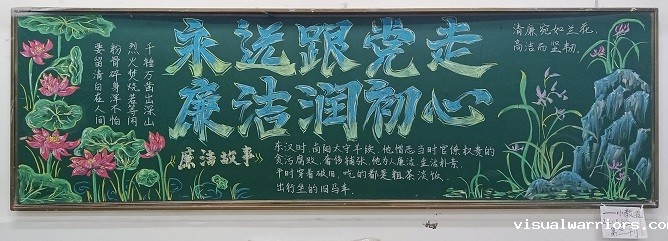 永远跟党走
廉洁润初心
千锤万凿出深山
烈火焚烧若等闲
粉骨碎身浑不怕
要留清白在人间
清廉宛如兰花,
高洁而坚韧.
《廉洁故事》
东汉时,南阳太守羊续,他憎恶当时官僚权贵的
贪污腐败、奢侈铺张,他为人廉洁,生活朴素.
平时穿着破旧,吃的都是粗茶淡饭,
出行坐的旧马车.
visualwarriors.co